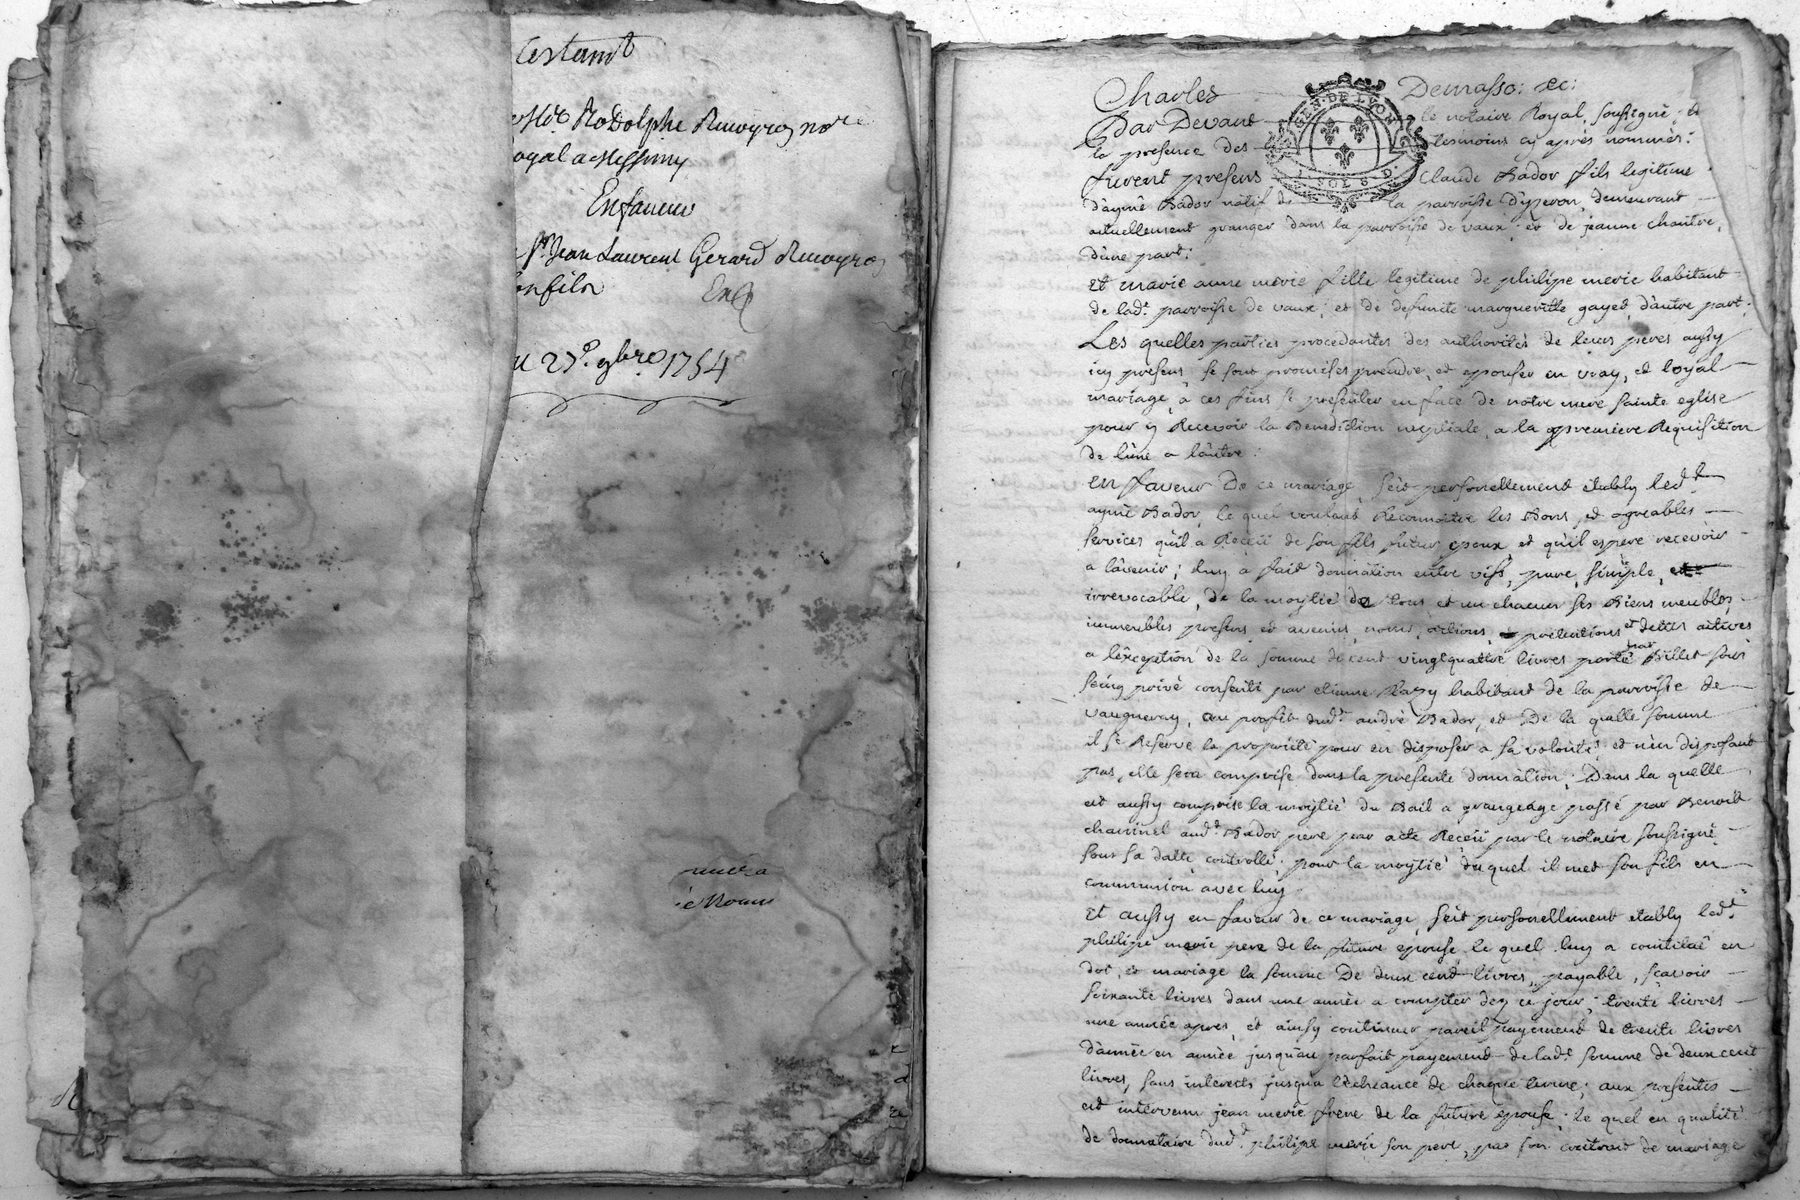 testamt
Rodolphe Ruoyros nore
oyal a Messimy
En faveur
Sr Jean Laurent Gerard Ruoyros
son fils
u 27e. 9bre 1754
Charles Demasso: &c:
GEN. DE LYON
SOLS. D.
Par Devant le notaire Royal, soussigné; et
la presence des tesmoins cy après nommés:
furent presens Claude Bador fils legitime
d'aymé Bador natif de la parroisse d'yzeron, demeurant
actuellement granger dans la parroisse de vaux; et de jeanne chantre,
d'une part;
Et marie anne merie fille legitime de philipe merie habitant
de lad.t parroisse de vaux; et de defunte margueritte gayet, d'autre part.
Les quelles parties procedantes des authorités de leurs peres aussy
icy presens, se sont promises prendre, et epouser en vray, et loyal
mariage, a ces fins se presenter en face de notre mere sainte eglise
pour y Recevoir la Benediction nuptiale, a la premiere Requisition
de l'une a l'autre:
En faveur De ce mariage, s'eit personellement etably led.t
aymé Bador, le quel voulant Reconnoitre les Bons, et agreables
services qu'il a Receü de son fils futur epoux, et qu'il espere recevoir
a l'avenir; luy a fait donnation entre vifs, pure, simple,
irrevocable, de la moytié de tous et un chacun ses Biens meubles,
immeubles presens et avenirs, noms, actions, pretentions et dettes actives
a l'exception de la somme de cent vingtquattre livres porté par Billet sous
seing privé consenti par etienne Razy habitant de la parroisse de
vaugneray, au profit dud.t andré Bador, et De la qu'elle somme
il se Reserve la proprieté pour en disposer a sa volonté; et n'en disposant
pas, elle sera comprise dans la presente donnation; Dans la quelle
est aussy comprise la moytié du Bail a grangeage passé par Benoit
chaninel aud.t Bador pere par acte Receü par le notaire soussigné
sous sa datte controllé; pour la moytié du quel il met son fils en
communion avec luy
Et aussy en faveur de ce mariage, s'eit personellement etably led.t
philipe merie pere de la future epouse, le quel luy a constitué en
dot, et mariage la somme De deux cent livres, payable, sçavoir
soixante livres dans une année a compter dez ce jour; trente livres
une année apres, et ainsy continuer pareil payement de trente livres
d'année en année jusqu'au parfait payement de lad.t somme de deux cent
livres, sans interests jusqu'a l'echeance de chaque terme; aux presentes
est intervenu jean merie frere de la future epouse; le quel en qualité
de donnataire dud.t philipe merie son pere, par son contrat de mariage